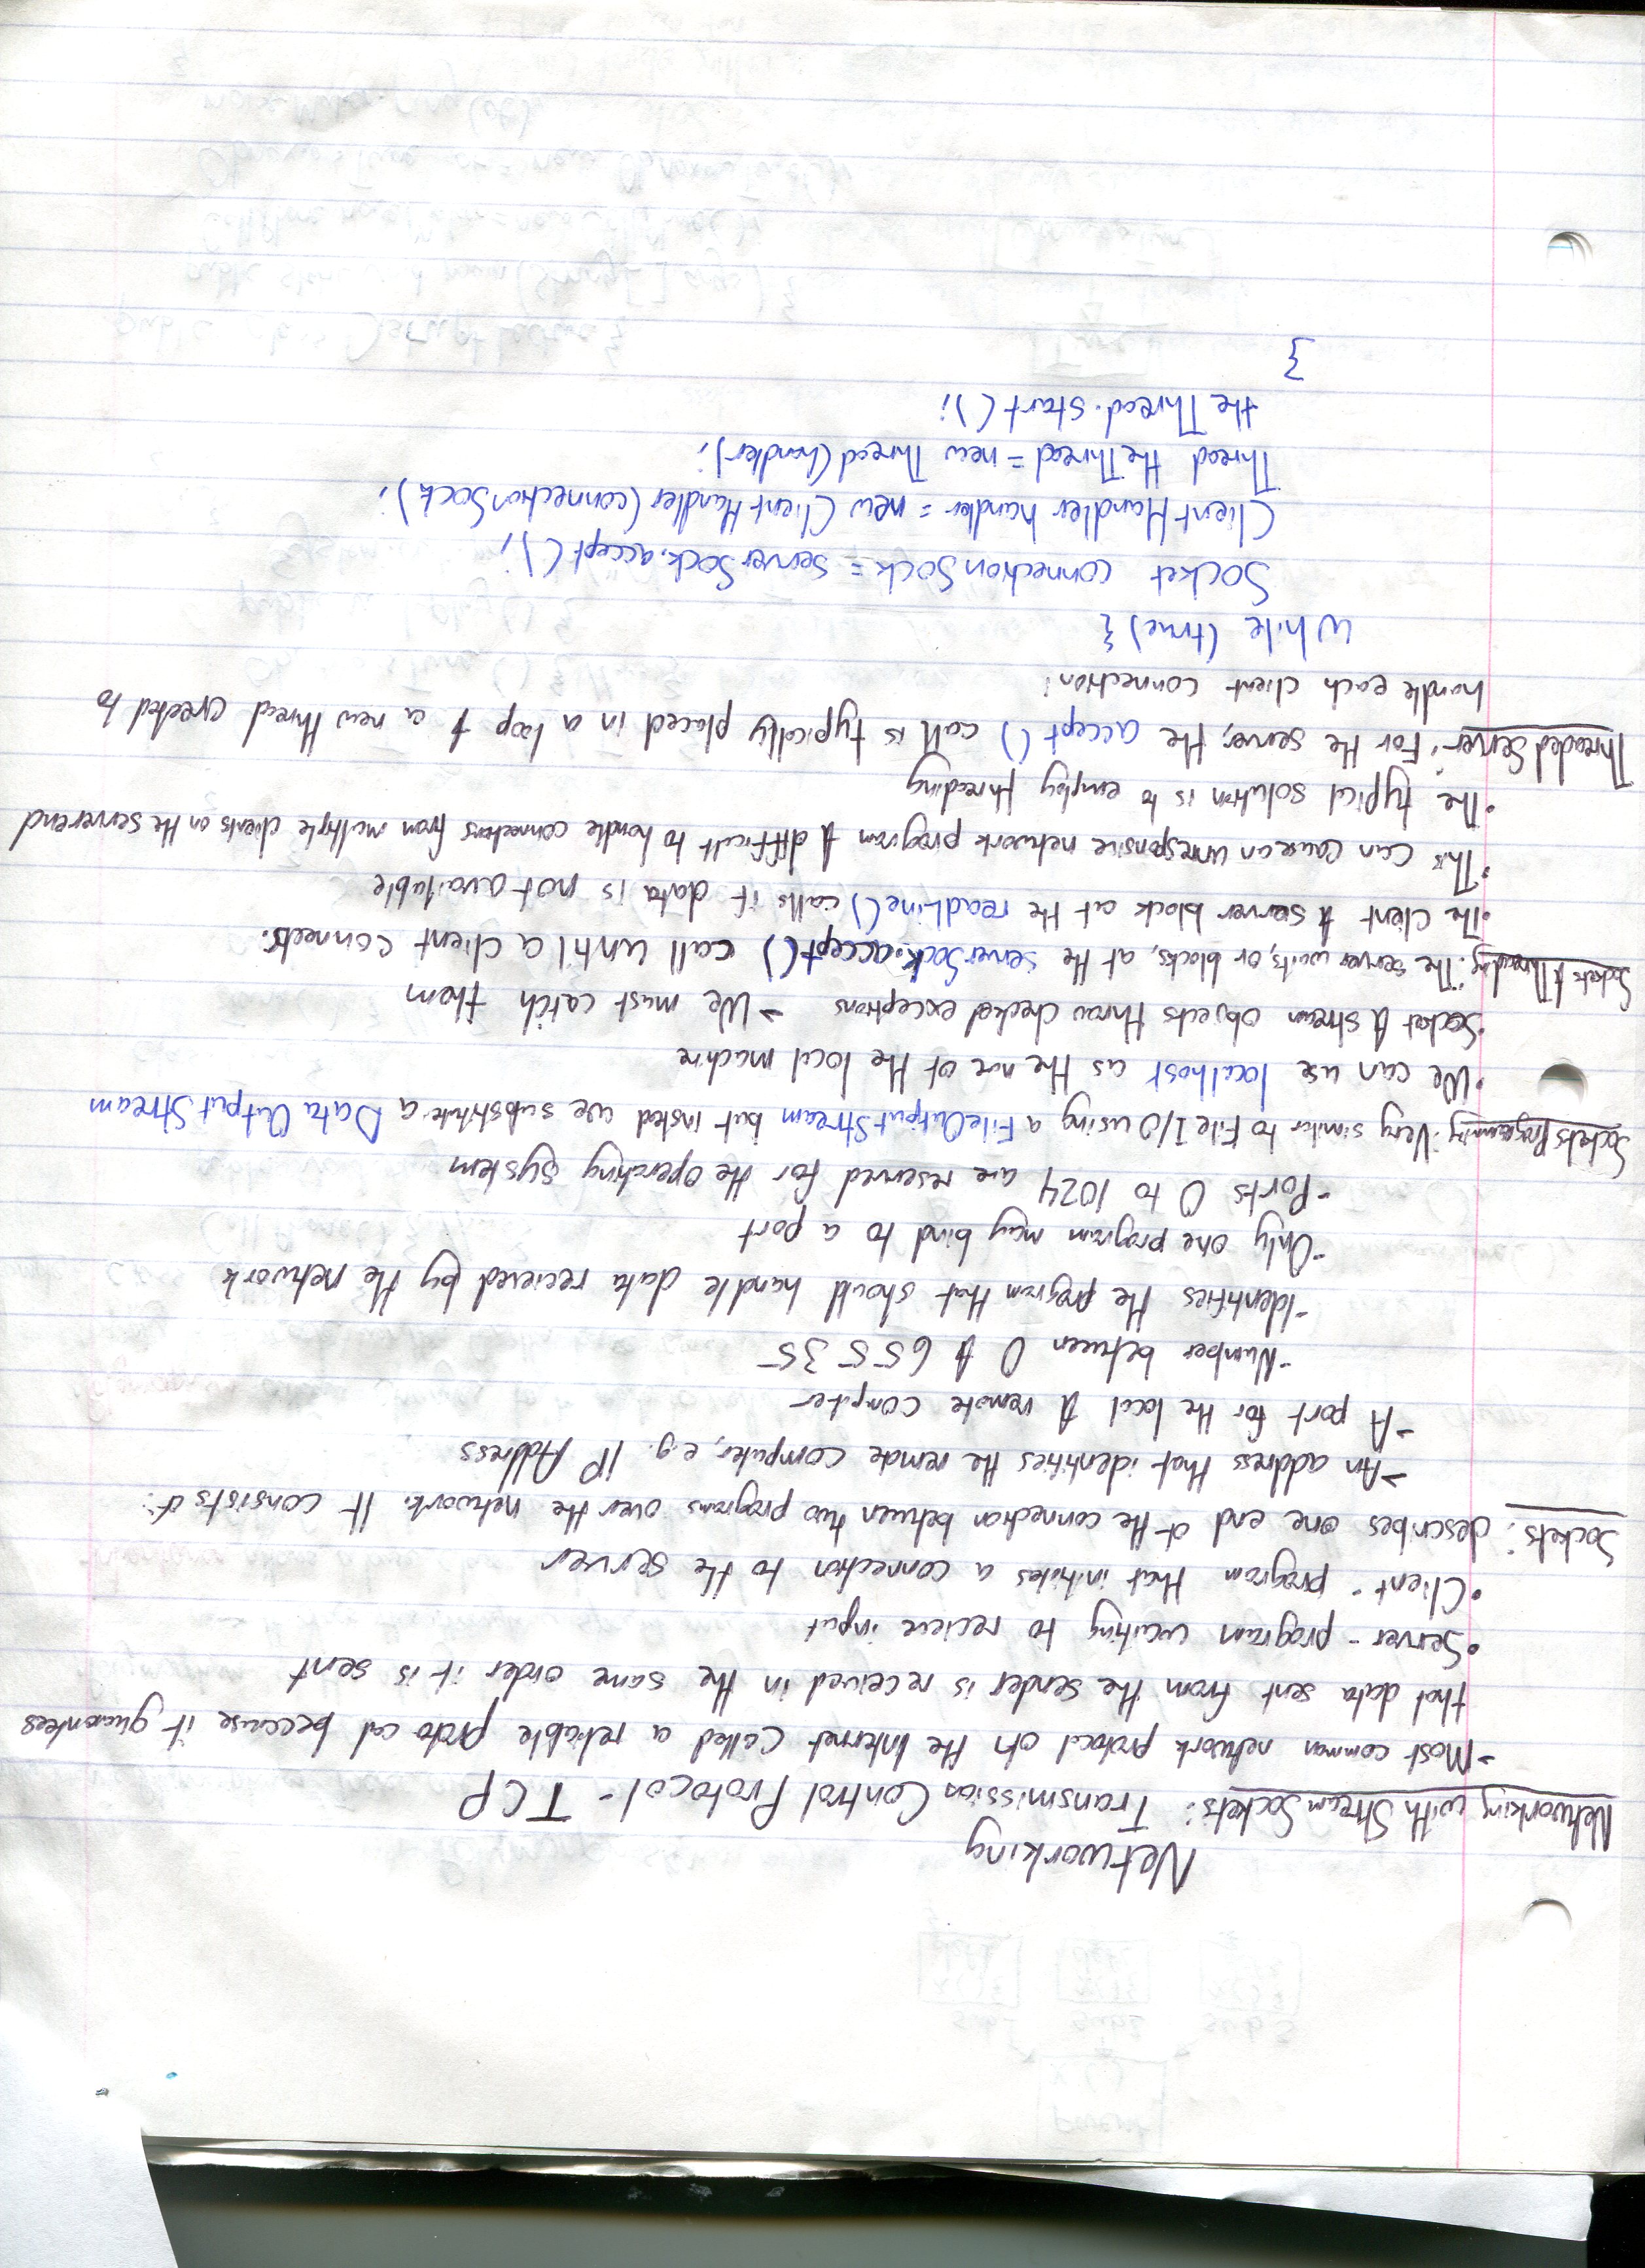 Networking
Networking with Stream Sockets: Transmission Control Protocol - TCP
→ Most common network protocol on the Internet called a reliable protocol because it guarantees
that data sent from the sender is received in the same order it is sent
• Server - program waiting to recieve input
• Client - program that initiates a connection to the server
Sockets: describes one end of the connection between two programs over the network. It consists of:
→ An address that identifies the remote computer, e.g. IP Address
→ A port for the local & remote computer
- Number between 0 & 65535
- Identifies the program that should handle data recieved by the network
- Only one program may bind to a port
- Ports 0 to 1024 are reserved for the operating system
Sockets Programming: Very similar to File I/O using a FileOutputStream but insted we substitute a DataOutputStream
• We can use localhost as the name of the local machine
• Socket & stream objects throw checked exceptions → We must catch them
Sockets & Threading: The server waits, or blocks, at the serverSock.accept() call until a client connects.
• The client & server block at the readLine() calls if data is not available
• This can cause an unresponsive network program & difficult to handle connections from multiple clients on the server end
• The typical solution is to employ threading
Threaded Server: For the server, the accept() call is typically placed in a loop & a new thread created to
handle each client connection:
While (true) {
Socket connectionSock = serverSock.accept();
ClientHandler handler = new ClientHandler(connectionSock);
Thread theThread = new Thread(handler);
theThread.start();
}